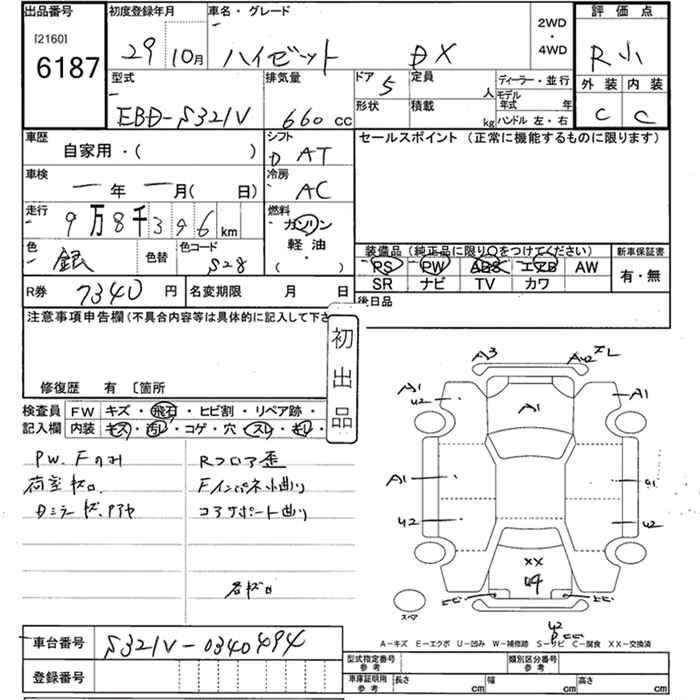 出品番号
[2160]
6187
初度登録年月
29 10月
車名・グレード
ハイゼット DX
2WD
・
4WD
評価点
R小
外装 内装
C C
型式
EBD-S321V
排気量
660 cc
ドア
5
定員
人
形状
積載
kg
ディーラー・並行
モデル
年式 年
ハンドル 左・右
車歴
自家用・( )
シフト
D AT
車検
年 月( 日)
冷房
AC
走行
9万8千396 km
燃料
ガソリン
軽油
( )
色
銀
色替
色コード
S28
R券 7340 円
名変期限 月 日
セールスポイント (正常に機能するものに限ります)
装備品 (純正品に限り○をつけてください)
新車保証書
PS PW ABS エアB AW
SR ナビ TV カワ
有・無
後日品
注意事項申告欄(不具合内容等は具体的に記入して下さ
修復歴 有 〔箇所
初出品
検査員
記入欄
FW キズ・飛石・ヒビ割・リペア跡・
内装 キズ・汚レ・コゲ・穴・スレ・
P.W.Fのみ
荷室キズ
Rフロア歪
Fインパネ小曲り
コアサポート曲り
A3 A42 XL
A1 A1
U2
A1
A1 a1
U2 U2
XX
U4
スペア
U2
A-キズ E-エクボ U-凹み W-補修跡 S-サビ C-腐食 XX-交換済
車台番号 S321V-0340494
登録番号
型式指定番号
参考
類別区分番号
参考
車庫証明用
参考
長さ cm 幅 cm 高さ cm